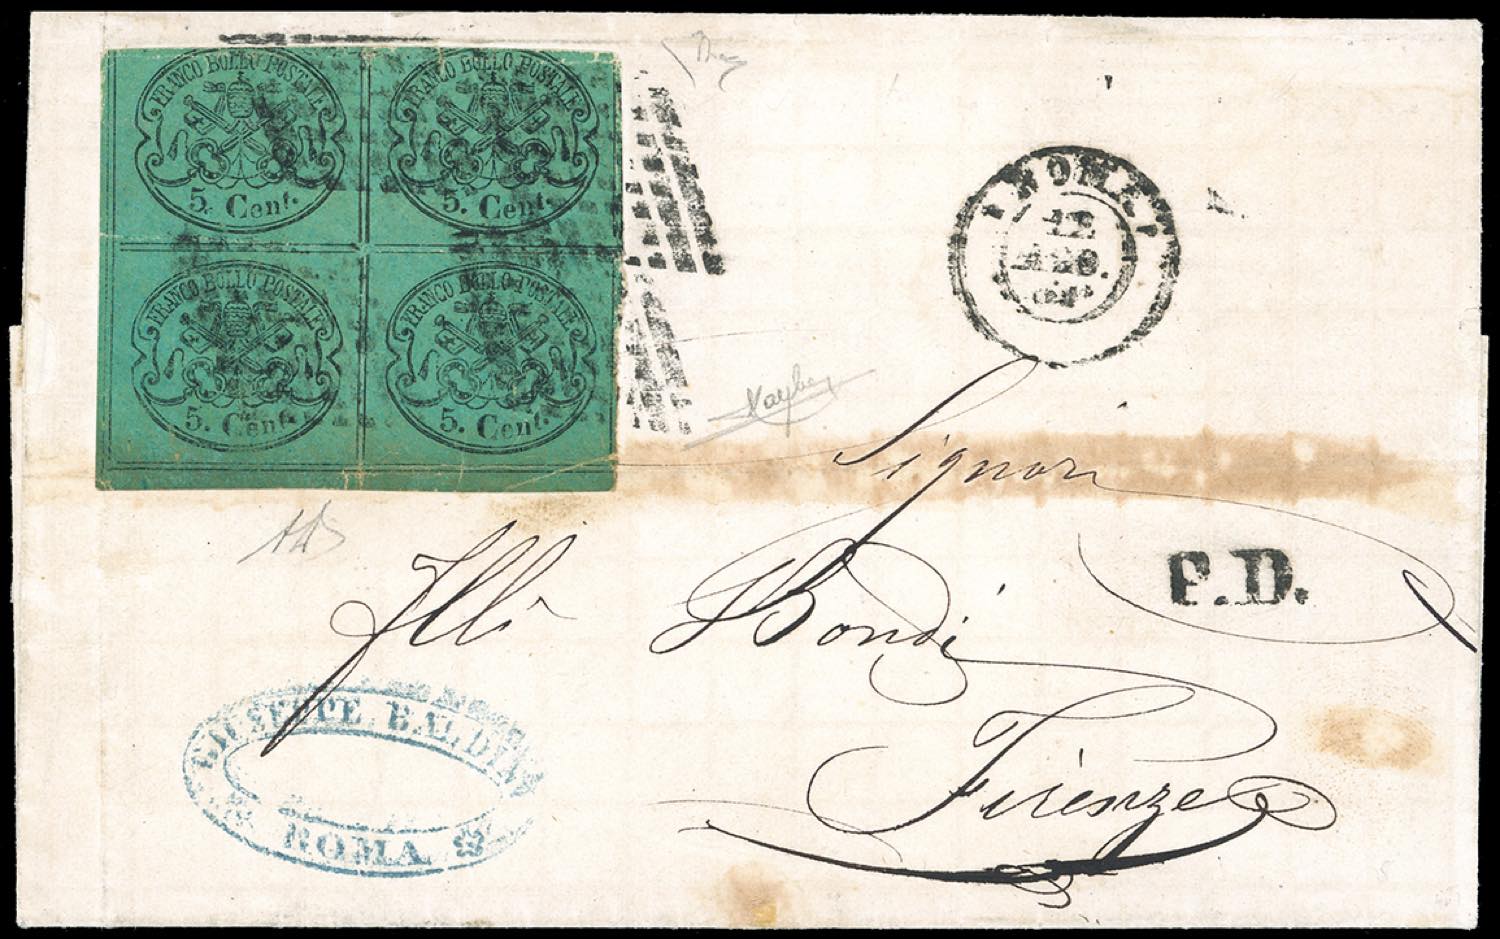 FRANCO BOLLO POSTALE
5. Cent.
FRANCO BOLLO POSTALE
5. Cent.
FRANCO BOLLO POSTALE
5. Cent.
FRANCO BOLLO POSTALE
5. Cent.
ROMA
Signori
P.D.
Flli Bondi
Firenze
GIUSEPPE BALDINI
ROMA